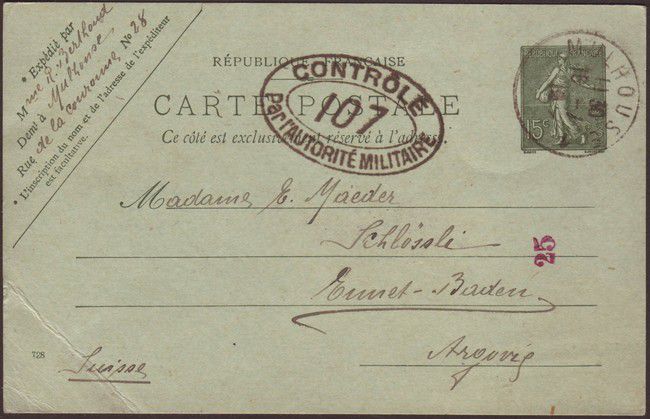 Expédié par
Mme R. Berthoud
Demt à Mulhouse,
Rue de la couronne, No 28
L'inscription du nom et de l'adresse de l'expéditeur
est facultative.
RÉPUBLIQUE FRANÇAISE
CARTE POSTALE
Ce côté est exclusivement réservé à l'adresse.
CONTRÔLE
107
Par l'AUTORITÉ MILITAIRE
MULHOUSE
15c
Madame E. Maeder
Schlössli
25
Ennet-Baden
Argovie
728
Suisse